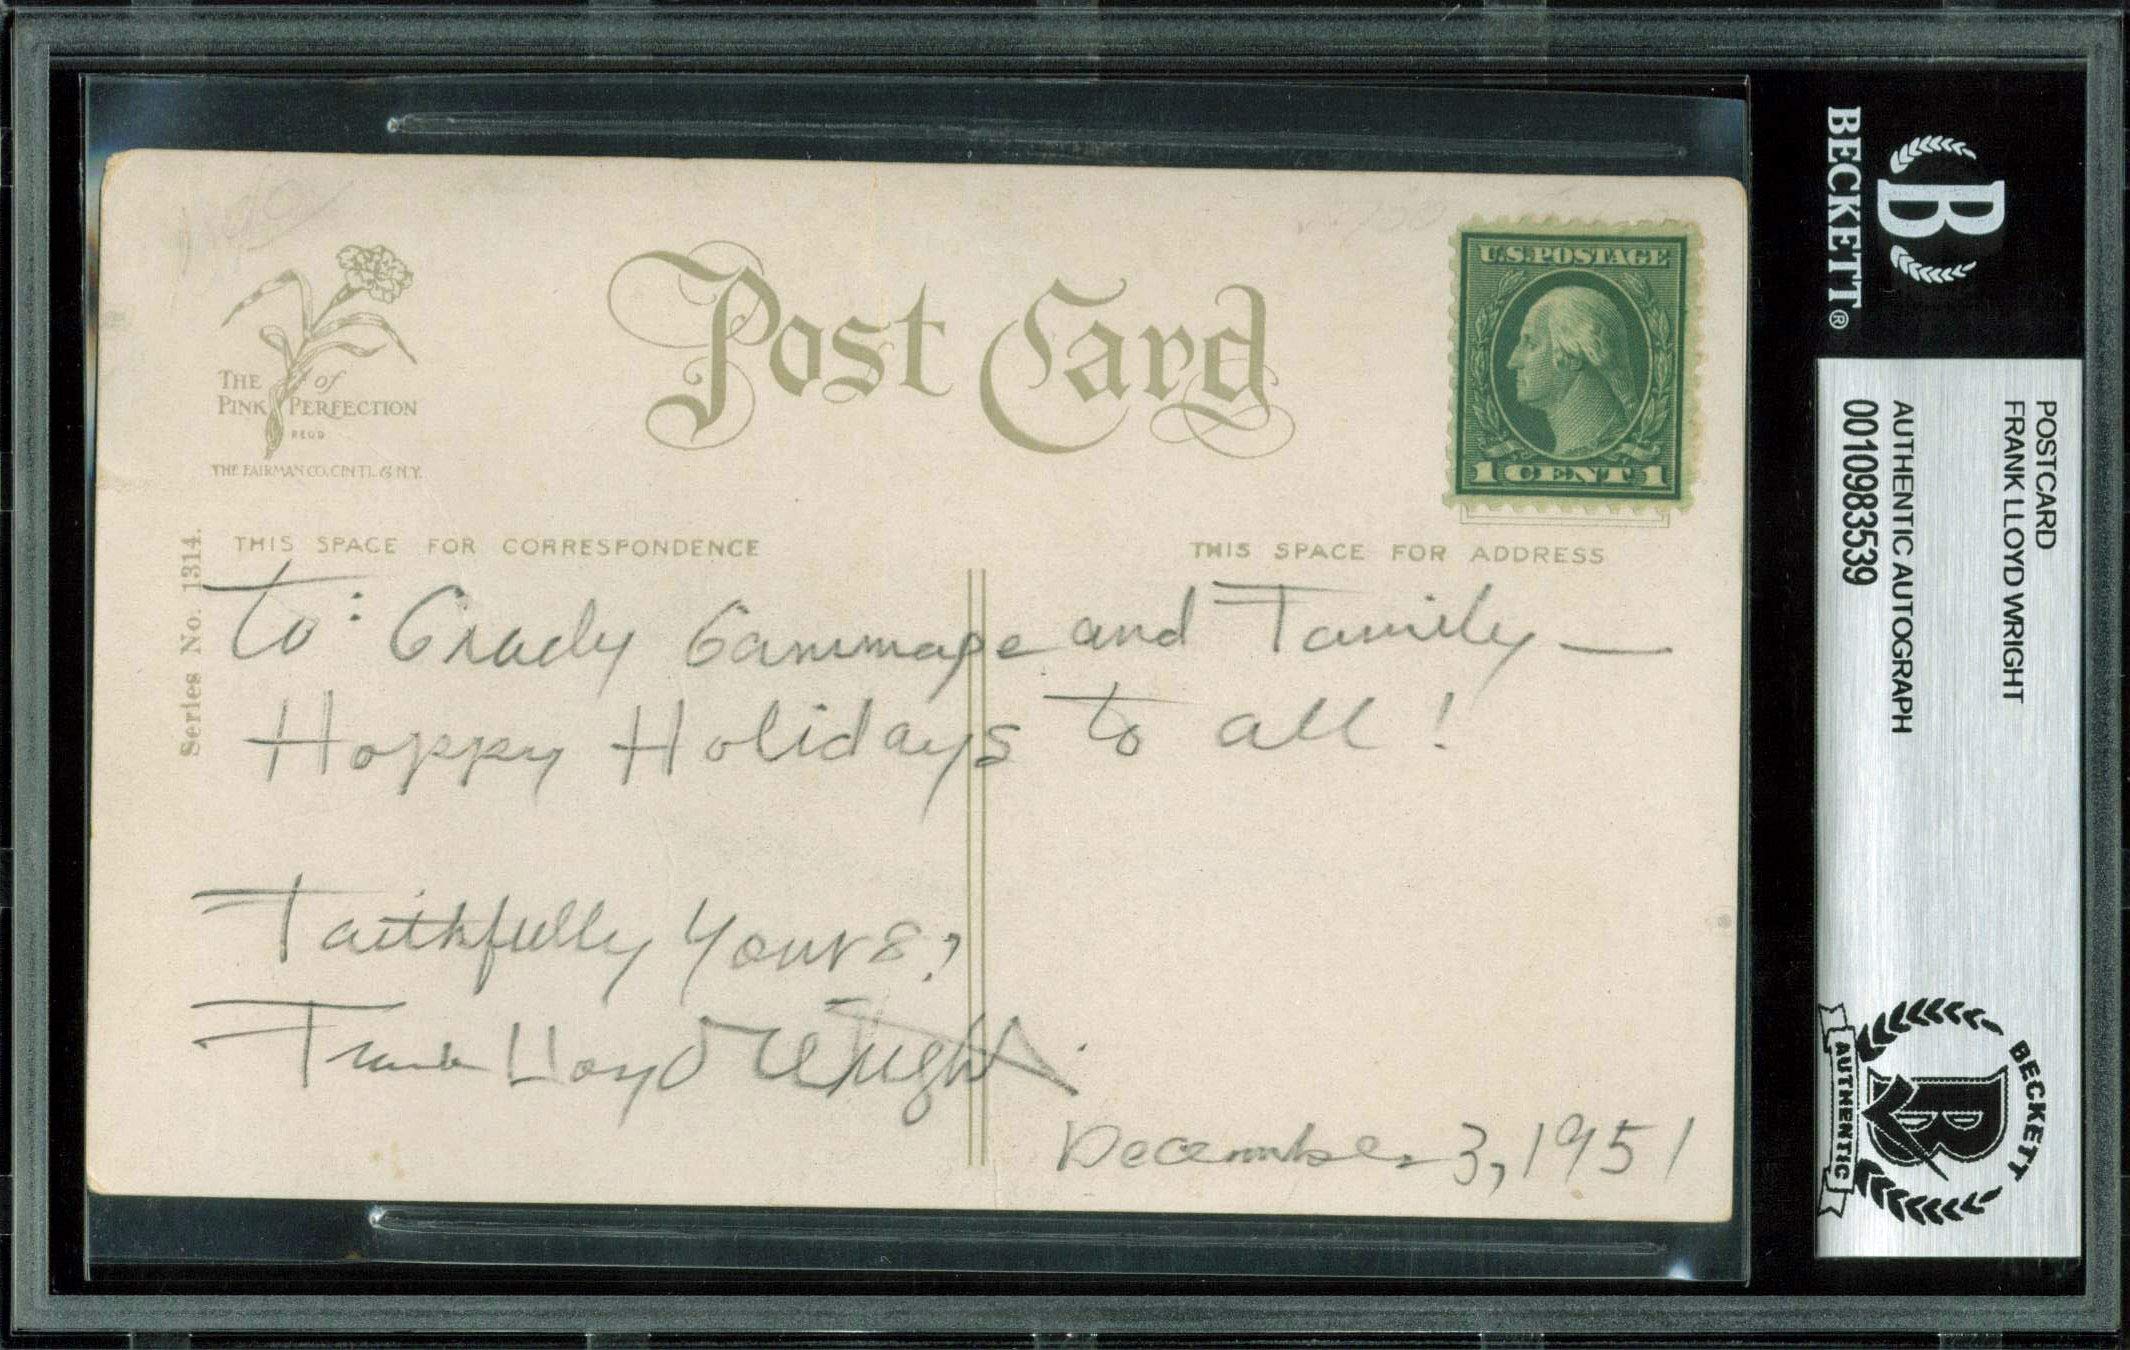 THE of
PINK PERFECTION
REGD
THE FAIRMAN CO. CINTI. & N.Y.
Post Card
U.S. POSTAGE
1 CENT 1
THIS SPACE FOR CORRESPONDENCE
THIS SPACE FOR ADDRESS
Series No. 1314.
To: Grady Gammage and Family —
Happy Holidays to all!
Faithfully Yours,
Frank Lloyd Wright
December 3, 1951
B
BECKETT®
POSTCARD
FRANK LLOYD WRIGHT
AUTHENTIC AUTOGRAPH
0010983539
BECKETT
B
AUTHENTIC